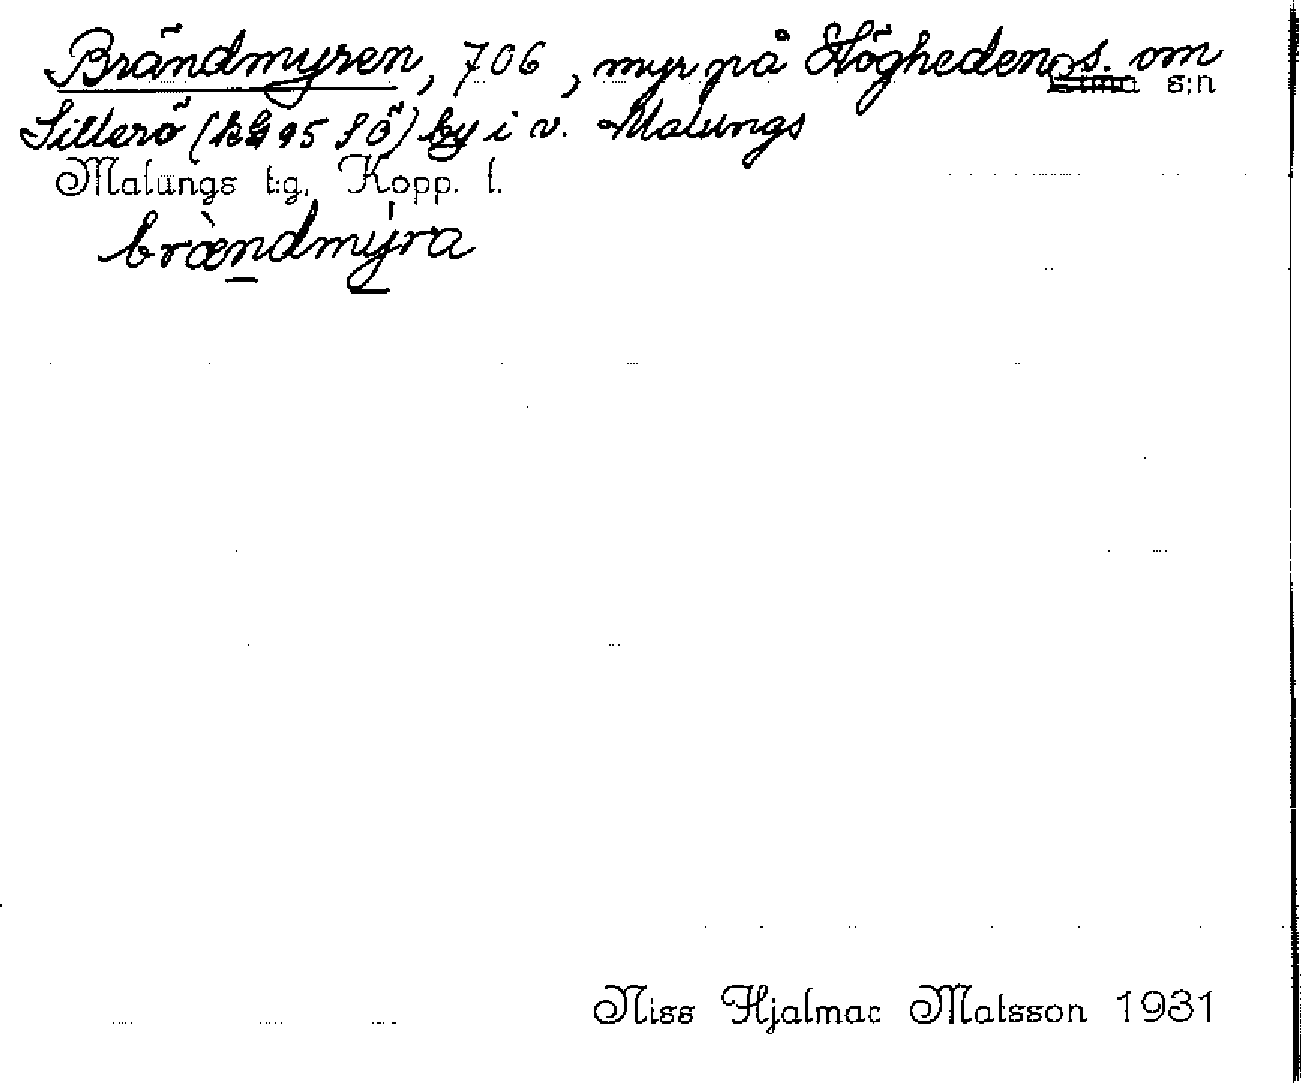 Brändmyren, 706, myr på Högheden s. om
Lima s:n
Sillerö (kbl 95 SÖ) by i v. Malungs
Malungs t:g, Kopp. l.
brændmyra
Niss Hjalmar Matsson 1931